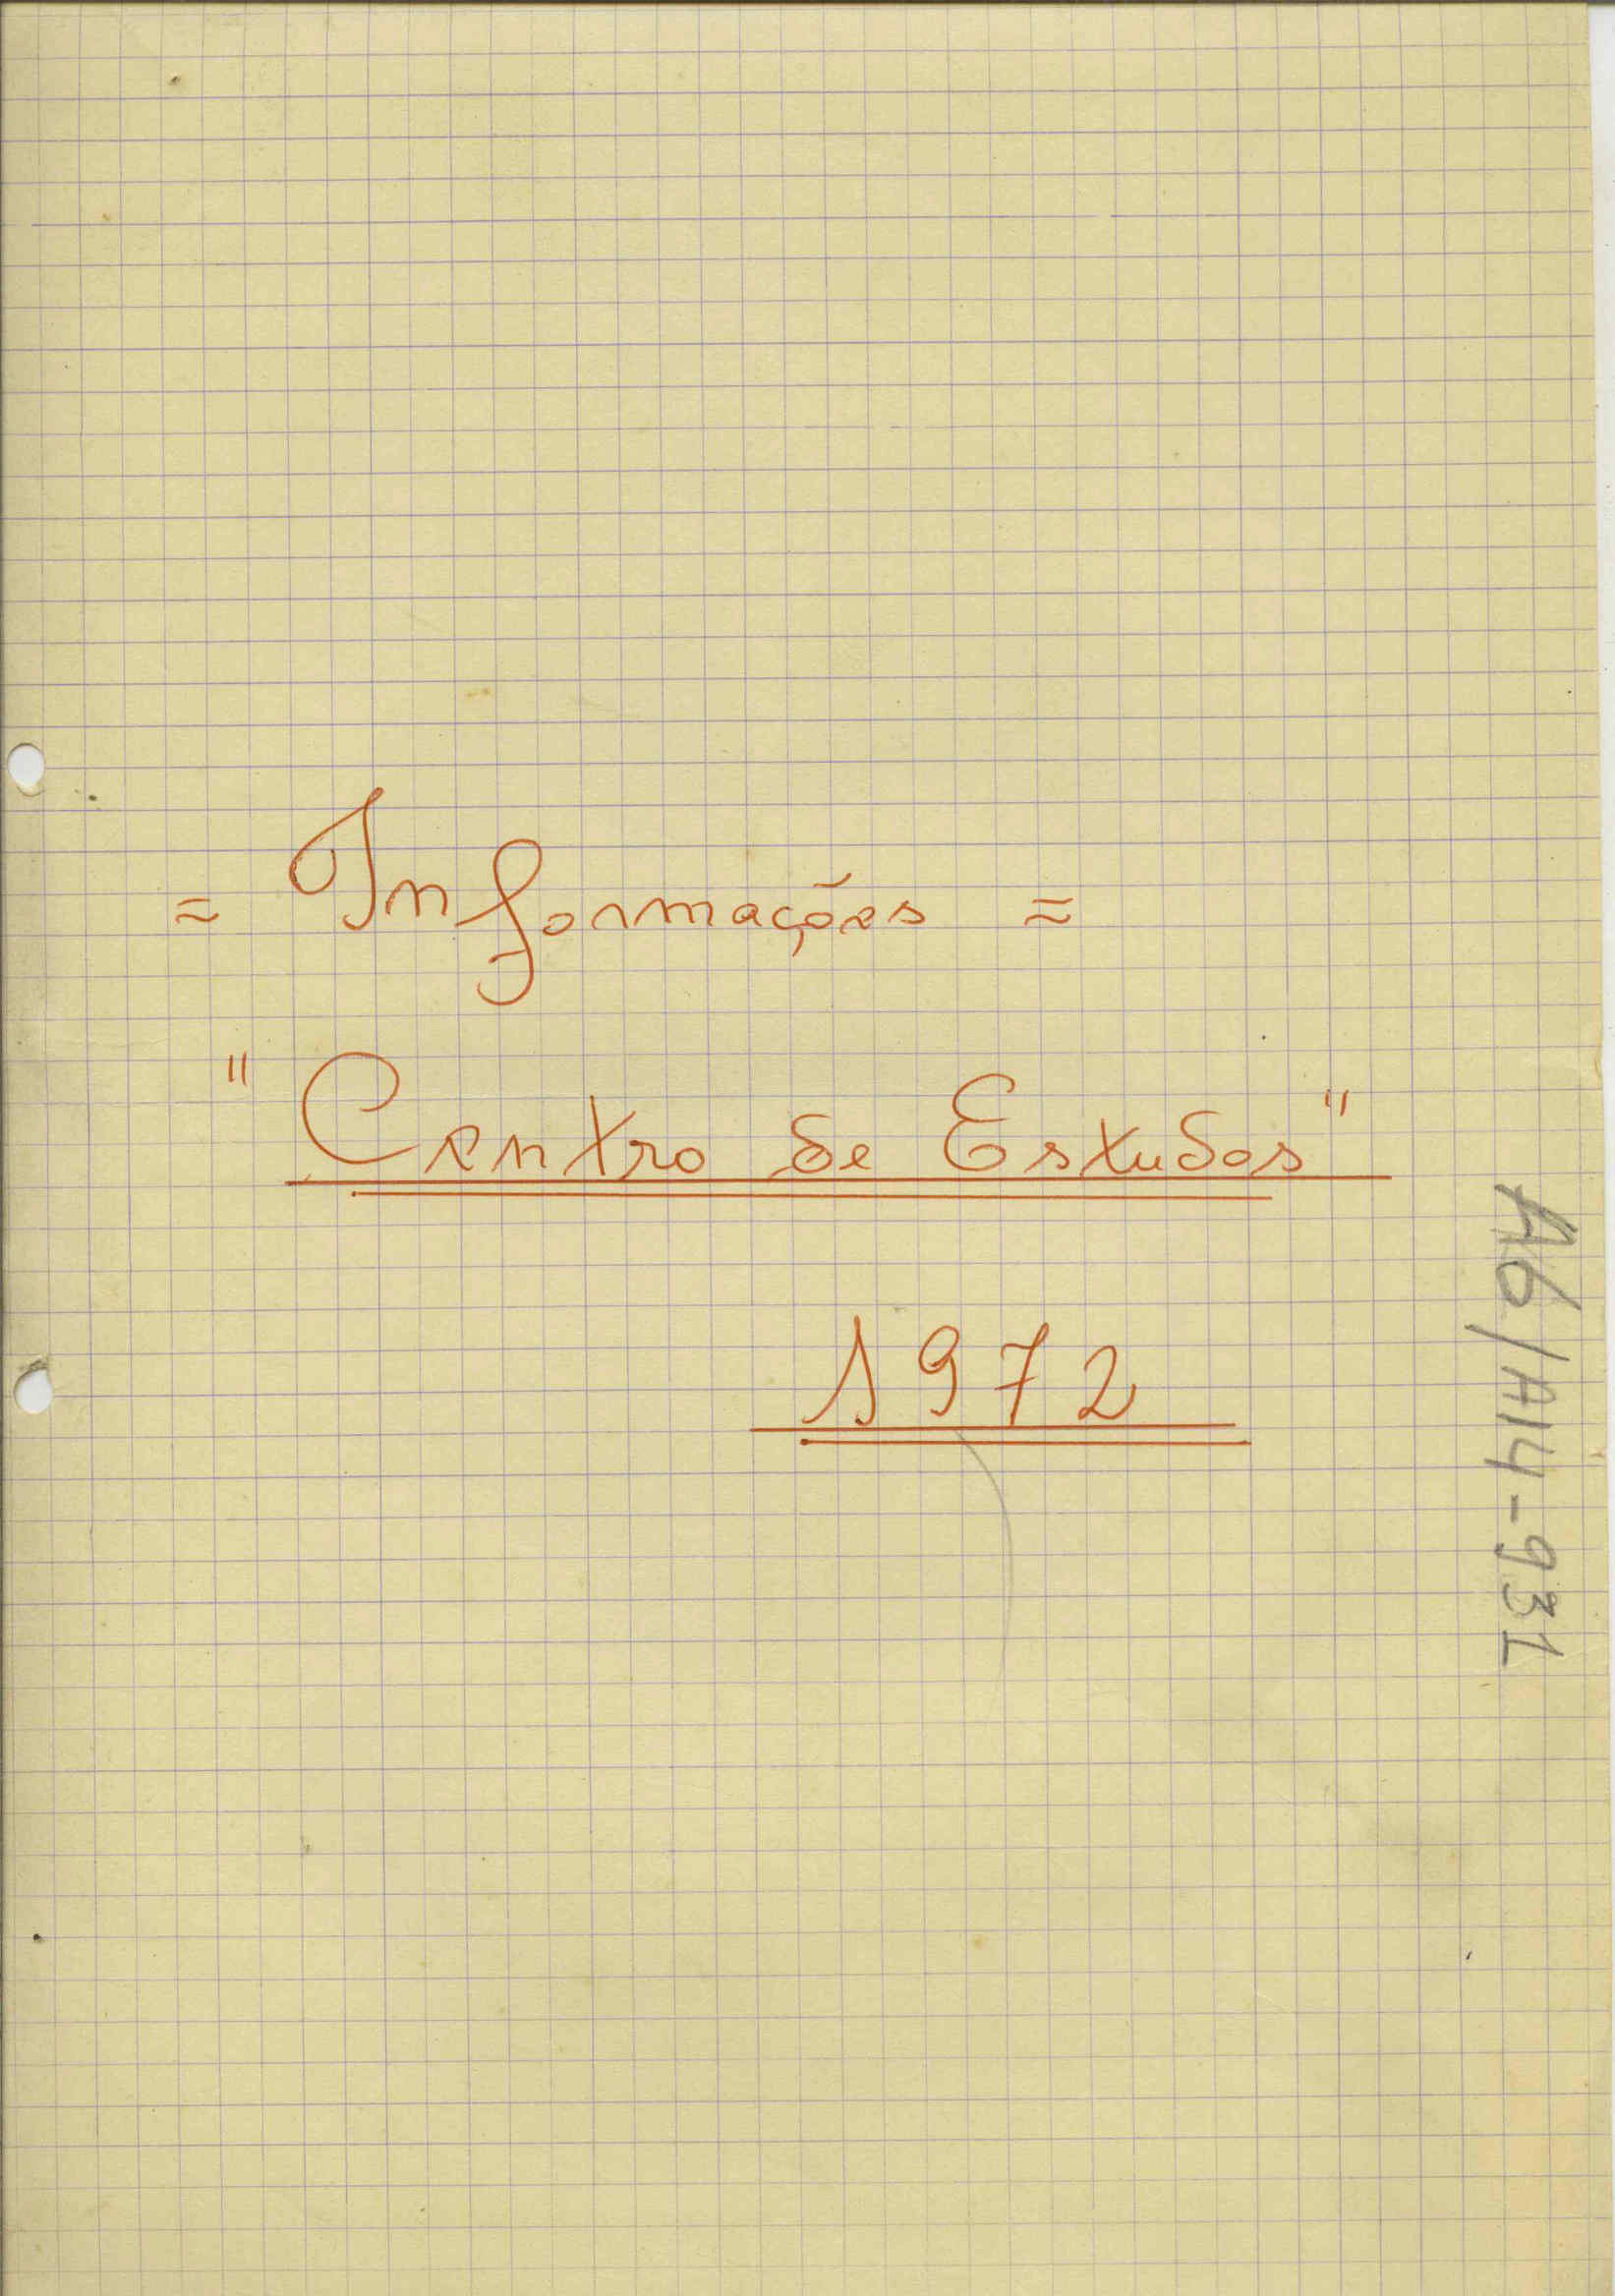 = Informações =
" Centro de Estudos "
1972
A6/A14-931